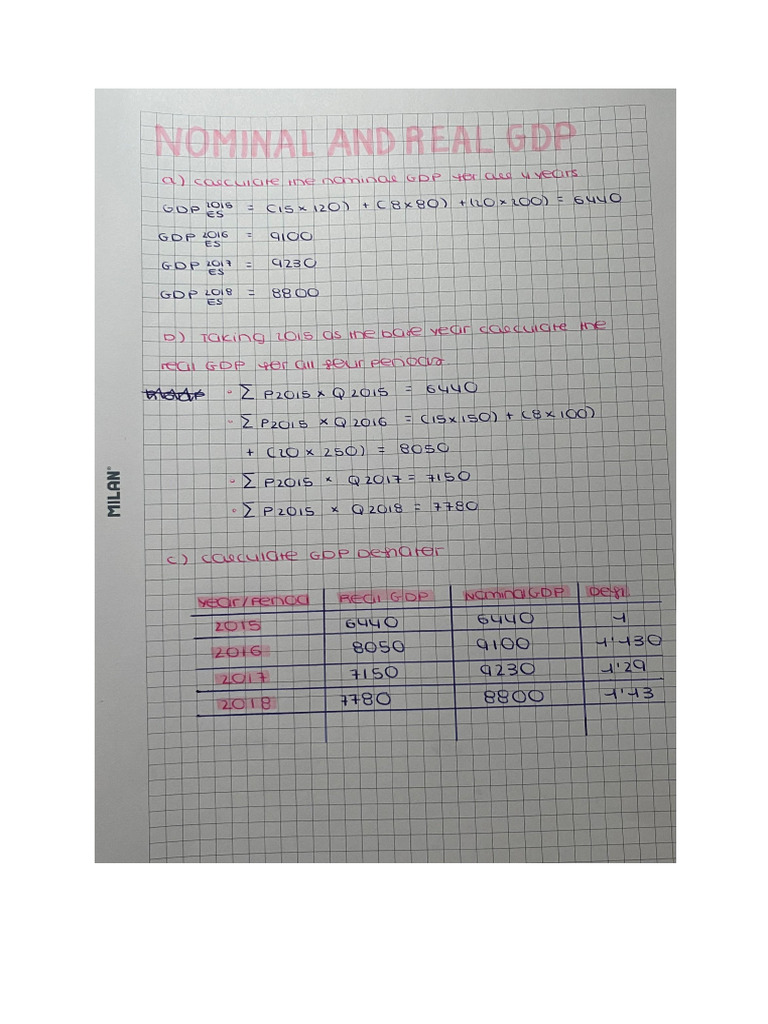 NOMINAL AND REAL GDP
a) calculate the nominal GDP for all 4 years
GDP 2015 ES = (15 x 120) + (8 x 80) + (20 x 200) = 6440
GDP 2016 ES = 9100
GDP 2017 ES = 9230
GDP 2018 ES = 8800
b) Taking 2015 as the base year calculate the
real GDP for all four periods
· Σ P2015 x Q 2015 = 6440
· Σ P2015 x Q 2016 = (15x150) + (8x100)
+ (20 x 250) = 8050
· Σ P2015 x Q2017 = 7150
· Σ P2015 x Q2018 = 7780
MILAN®
c) calculate GDP Deflater
year/Period Real GDP Nominal GDP Defl
2015 6440 6440 1
2016 8050 9100 1'130
2017 7150 9230 1'29
2018 7780 8800 1'13